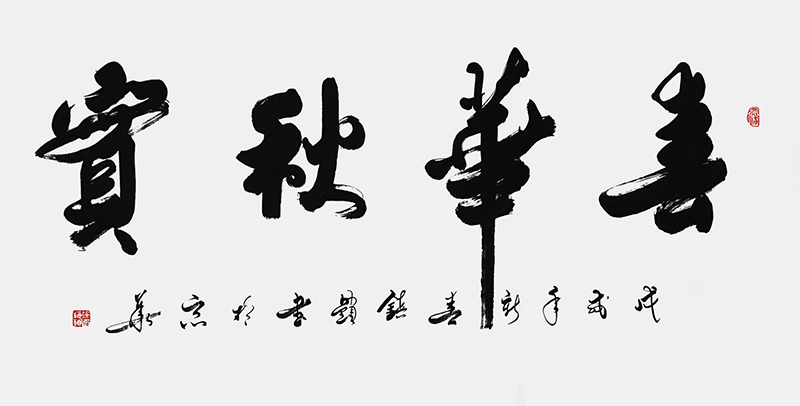 春華秋實
戊戌年新春鎮體書於京華